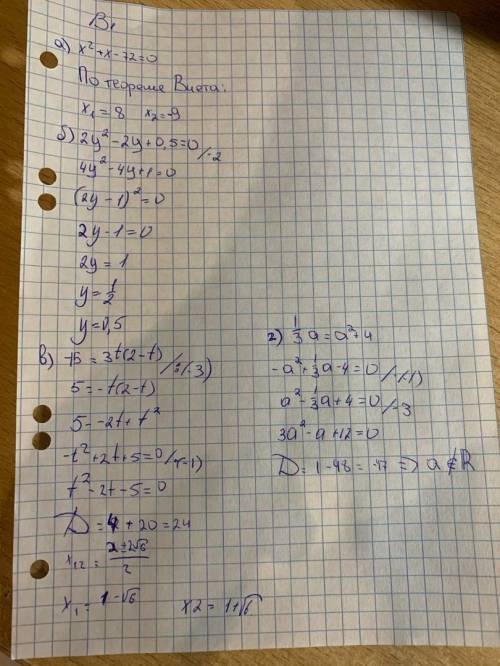 В1
а) x²+x-72=0
По теореме Виета:
x₁=8 x₂=-9
б) 2y²-2y+0,5=0 /·2
4y²-4y+1=0
(2y-1)²=0
2y-1=0
2y=1
y=1/2
y=0,5
в) -15=3t(2-t) /:(-3)
5=-t(2-t)
5=-2t+t²
-t²+2t+5=0 /·(-1)
t²-2t-5=0
D=4+20=24
x₁₂=(2±2√6)/2
x₁=1-√6 x2=1+√6
г) 1/3a=a²+4
-a²+1/3a-4=0 /·(-1)
a²-1/3a+4=0 /·3
3a²-a+12=0
D=1-48=-47 => a∉R